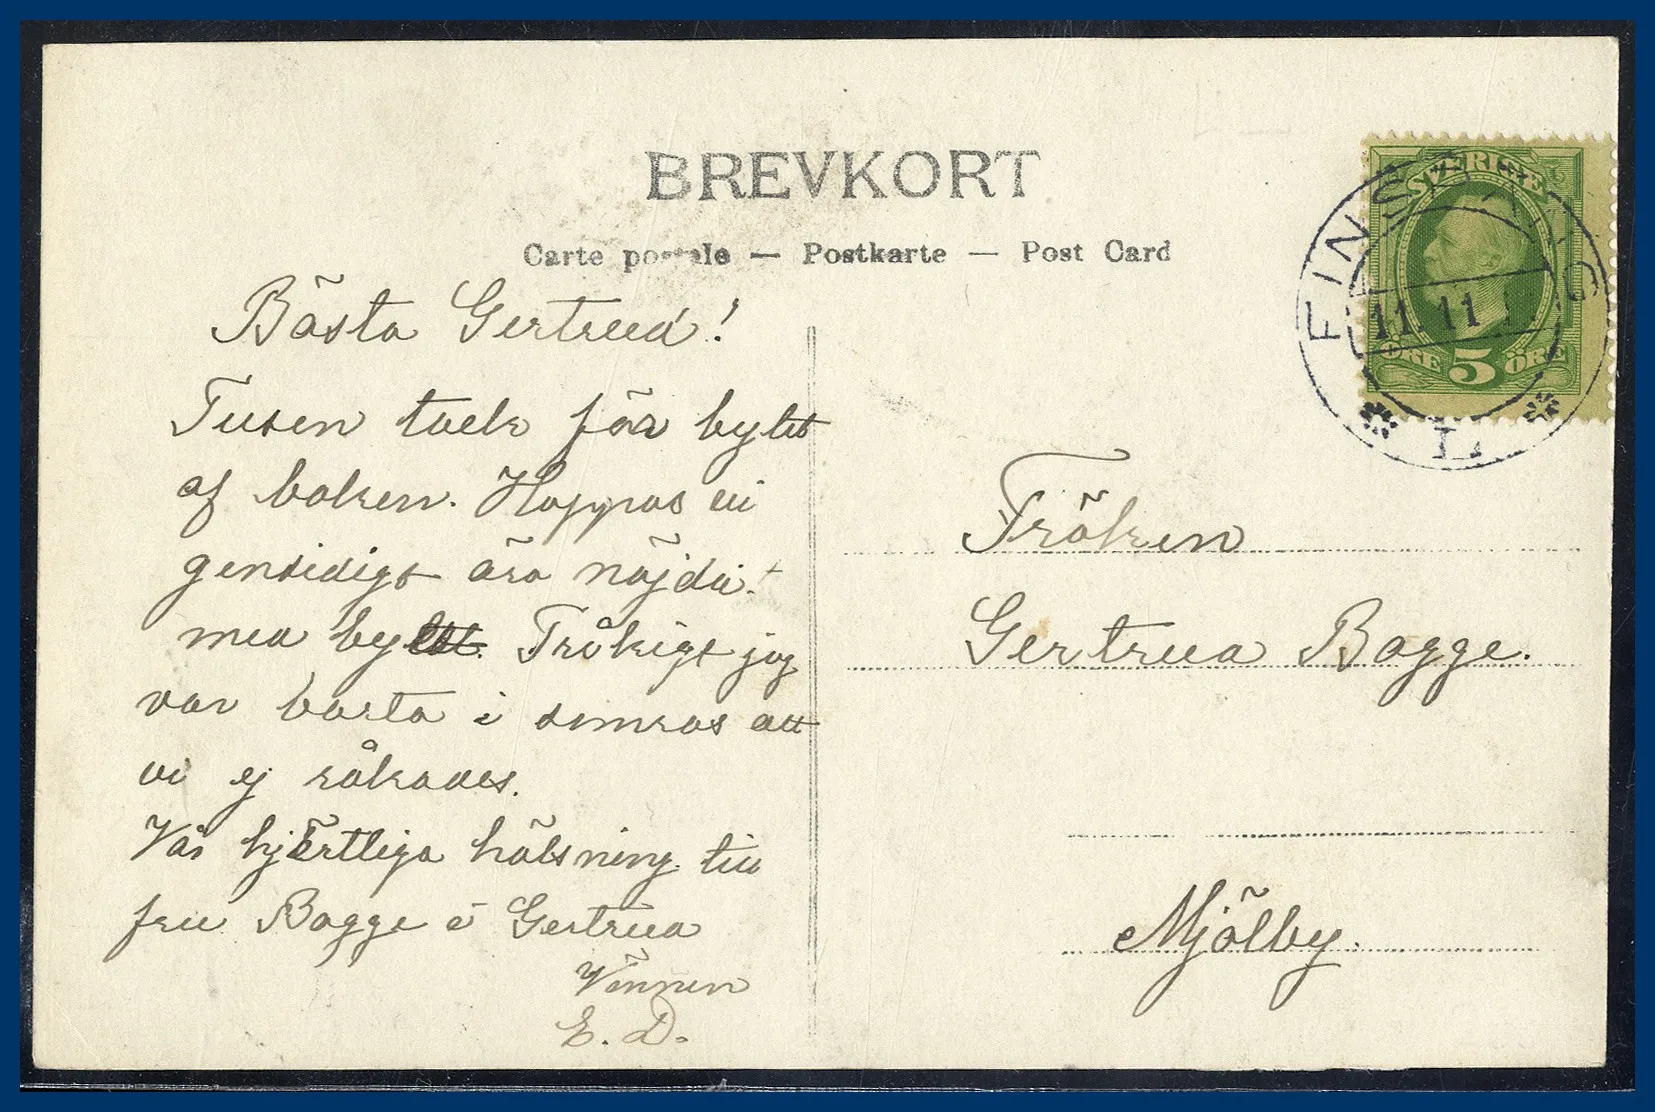 BREVKORT
Carte postale — Postkarte — Post Card
SVERIGE
FINSPÅNG
11.11.11
ÖRE 5 ÖRE
L
Bästa Gertrud!
Tusen tack för bytet
af boken. Hoppas vi
gensidigt ära nöjda!
med bytet. Tråkigt jag
var borta i somras att
vi ej råkades.
Vår hjärtliga hälsning till
fru Bagge o Gertrud
Vännen
E. D.
Fröken
Gertrud Bagge.
Mjölby.